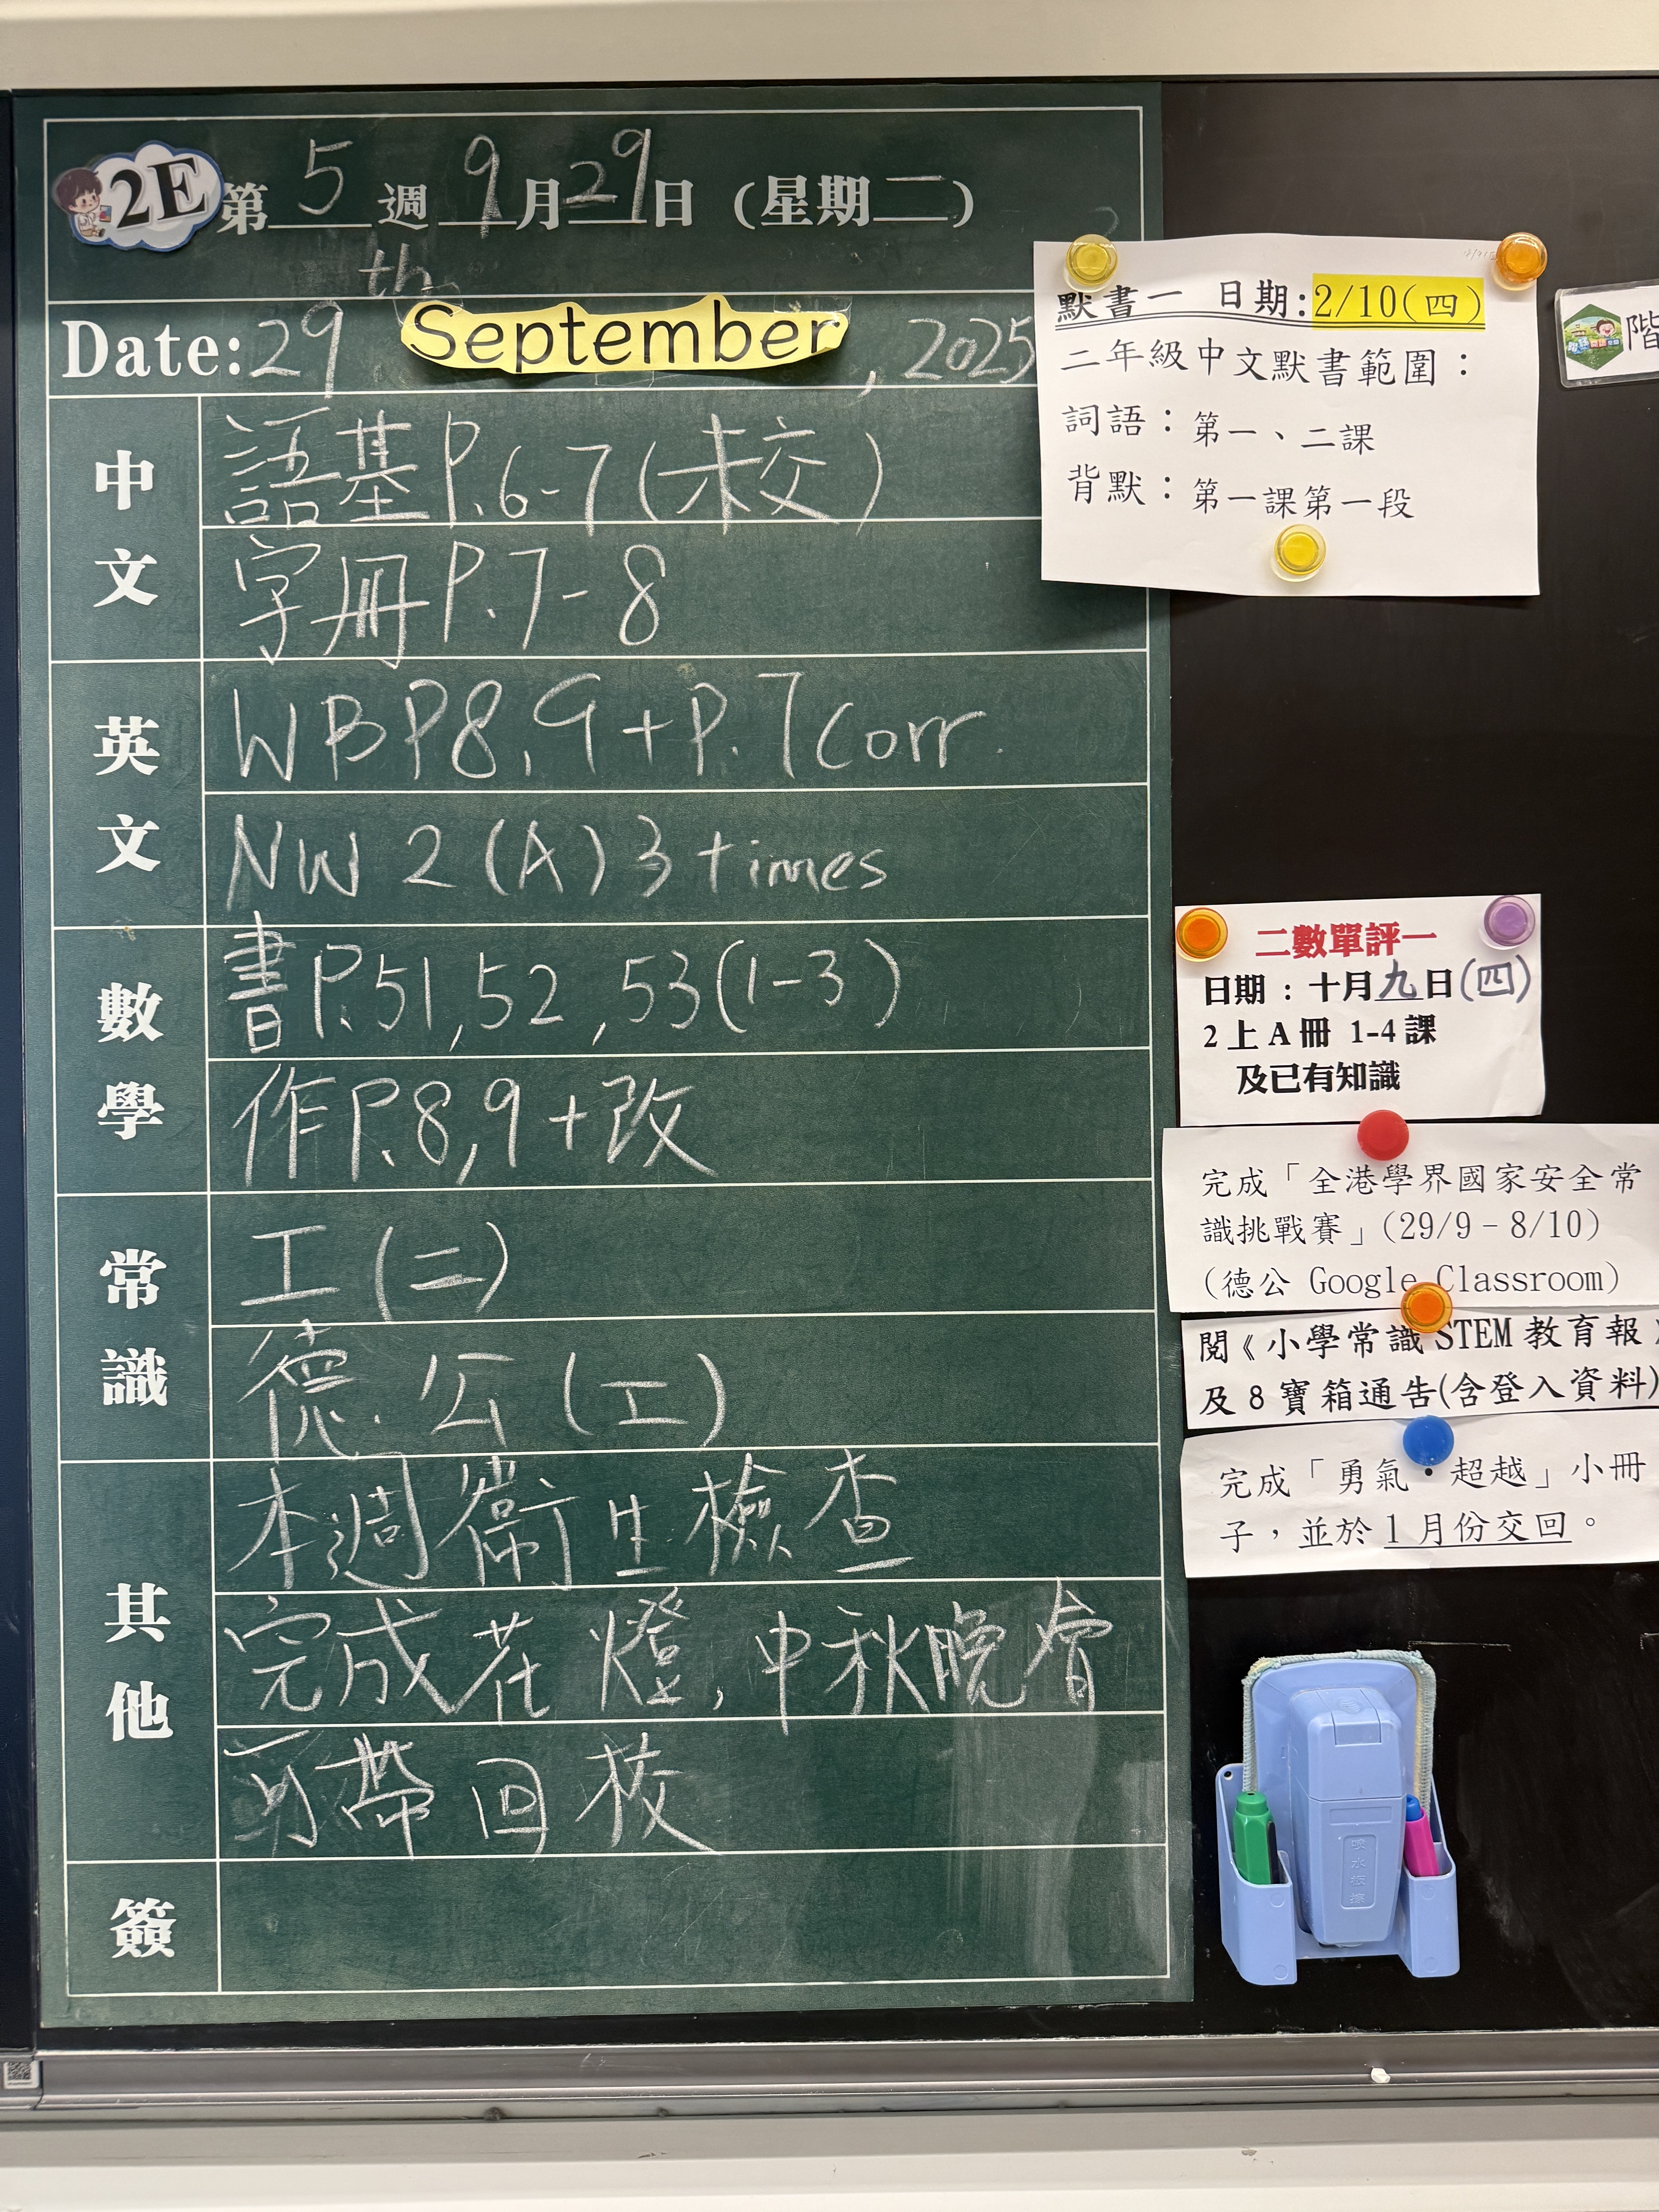 2E 第 5 週 9 月 29 日 (星期二)
Date: 29th September, 2025
中文
語基P.6-7(未交)
字冊P.7-8
英文
WB P8,9+P.7Corr.
NW 2 (A) 3 times
數學
書P.51,52,53(1-3)
作P.8,9+改
常識
工(二)
德.公(工)
其他
本週衞生檢查
完成花燈,中秋晚會
可帶回校
簽
默書一 日期:2/10(四)
二年級中文默書範圍：
詞語：第一、二課
背默：第一課第一段
階
二數單評一
日期：十月九日(四)
2上A冊 1-4課
及已有知識
完成「全港學界國家安全常
識挑戰賽」(29/9–8/10)
(德公 Google Classroom)
閱《小學常識STEM教育報》
及8寶箱通告(含登入資料)
完成「勇氣•超越」小冊
子，並於1月份交回。
吸水板擦